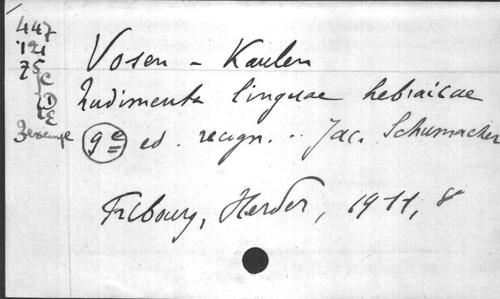 447
121
75
C
D
E
Vosen - Kaulen
Rudimenta linguae hebraicae
9e ed. recogn. .. Jac. Schumacher
Fribourg, Herder, 1911, 8